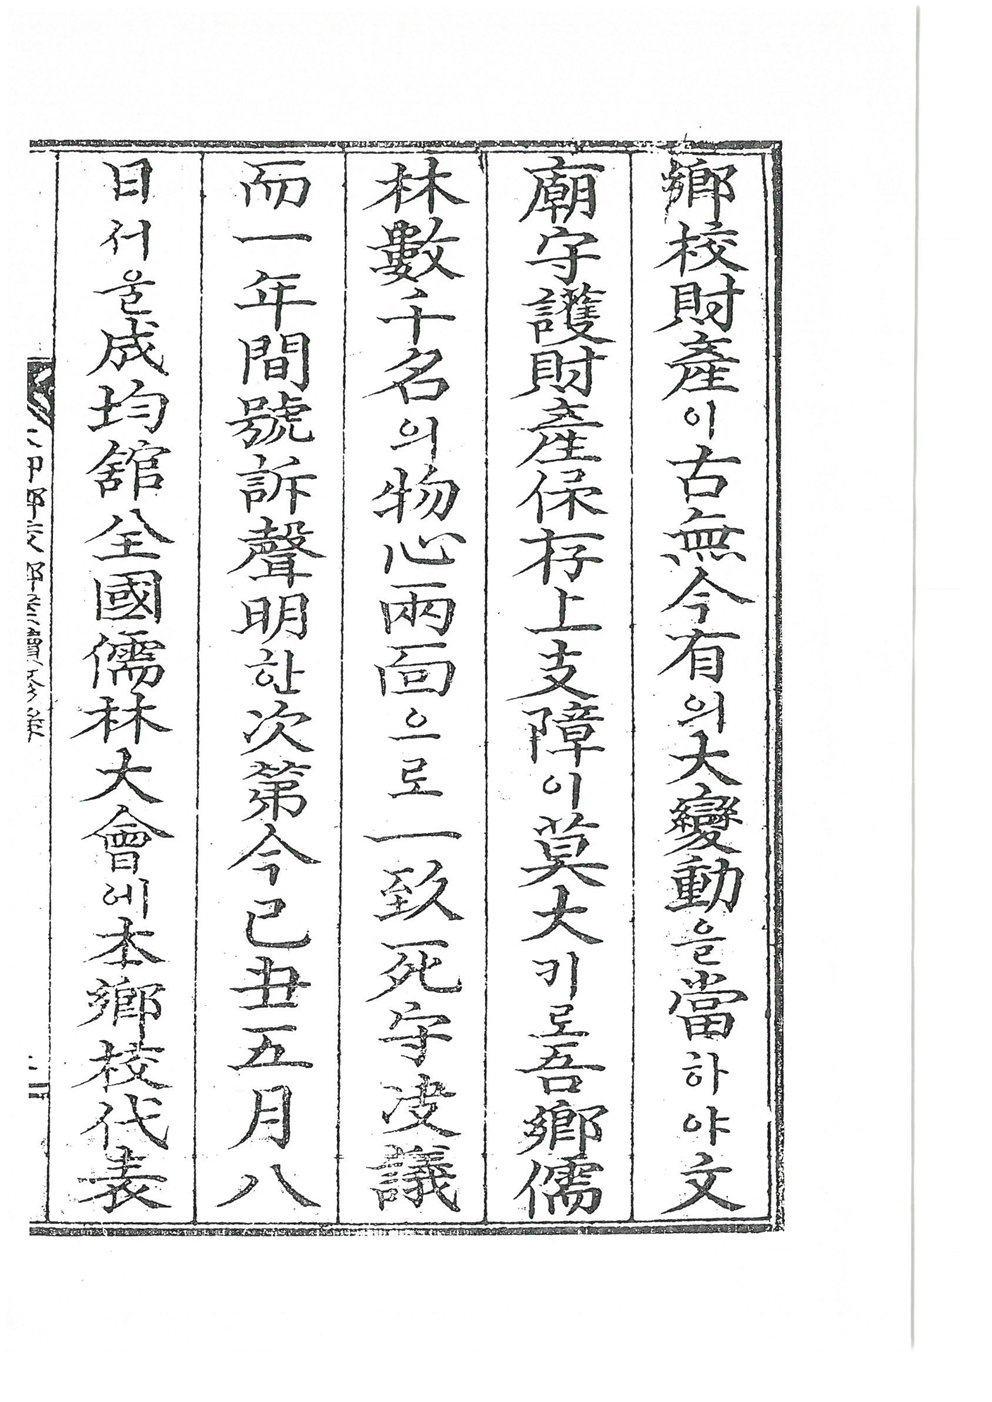 鄕校財產이古無今有의大變動을當하야文
廟守護財產保存上支障이莫大키로吾鄕儒
林數千名의物心兩面으로一致死守决議
而一年間號訴聲明한次第今己丑五月八
日서울成均舘全國儒林大會에本鄕校代表